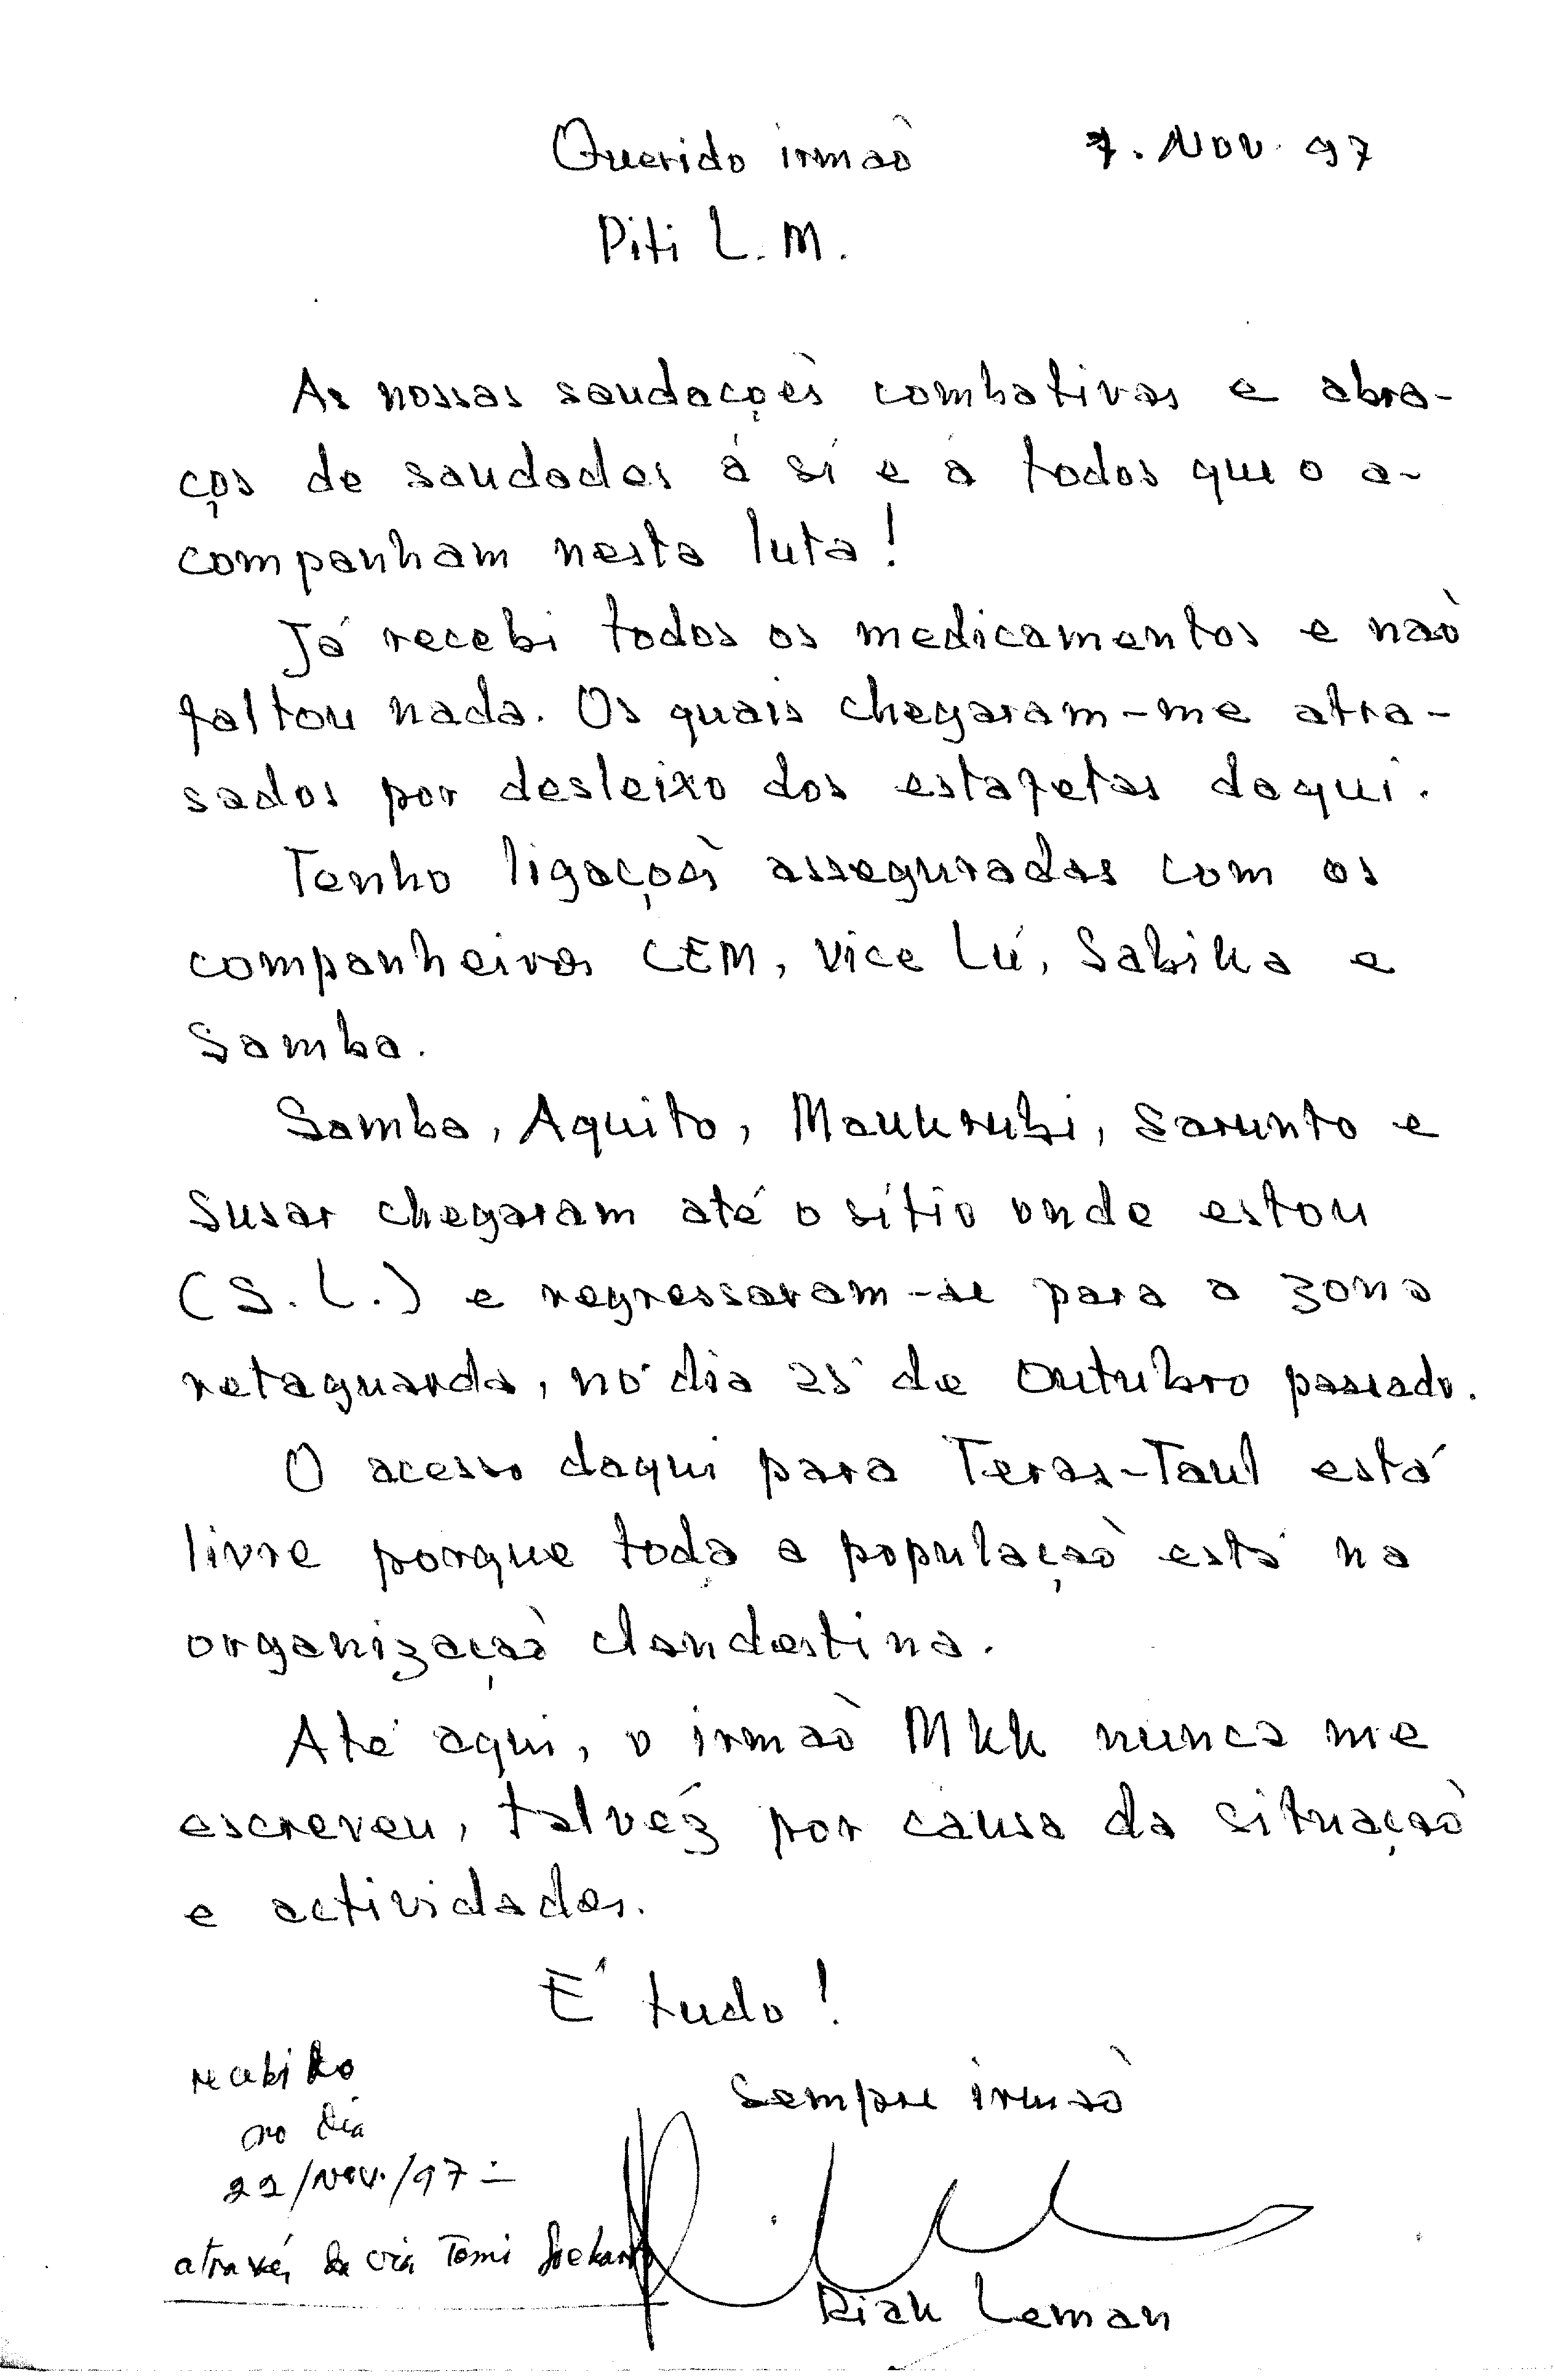 Querido irmaõ 7. NOV. 97
Piti L. M.
As nossas saudaçoẽs combativas e abra-
ços de saudades á sí e a todos que o a-
companham nesta luta!
Já recebi todos os medicamentos e naò
faltou nada. Os quais chegaram-me atra-
sados por desleixo dos estafetas daqui.
Tenho ligaçoès asseguradas com os
companheiros CEM, Vice Lú, Sabika e
Samba.
Samba, Aquito, Maukrubi, Sarunto e
Susar chegaram até o sítio onde estou
(S. L.) e regressaram-se para a zona
retaguarda, no dia 25 de Outubro passado.
O acesso daqui para Teras-Taul está
livre porque toda a populaçaò está na
organizaçaò clandestina.
Até aqui, o irmaò Mkk nunca me
escreveu, talvéz por causa da situaçaò
e actividades.
É tudo!
Sempre irmaò
recebido
no dia
22/Nov./97 =
através da via Tomi
Riak Leman